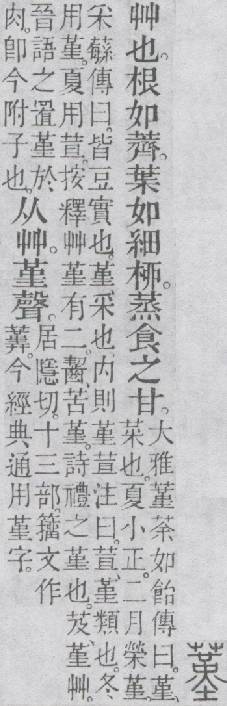 蓳
艸也。根如薺。葉如細桺。蒸食之甘。大雅堇荼如飴傳曰。堇、
菜也。夏小正。二月榮堇。
采蘩傳曰。皆豆實也。堇采也。內則堇荁注曰。荁、堇類也。冬
用堇。夏用荁。按釋艸堇有二。齧、苦堇。詩禮之堇也。芨、堇艸。
晉語之置堇於
肉。卽今附子也。从艸。堇聲。居隱切。十三部。籒文作
今經典通用堇字。